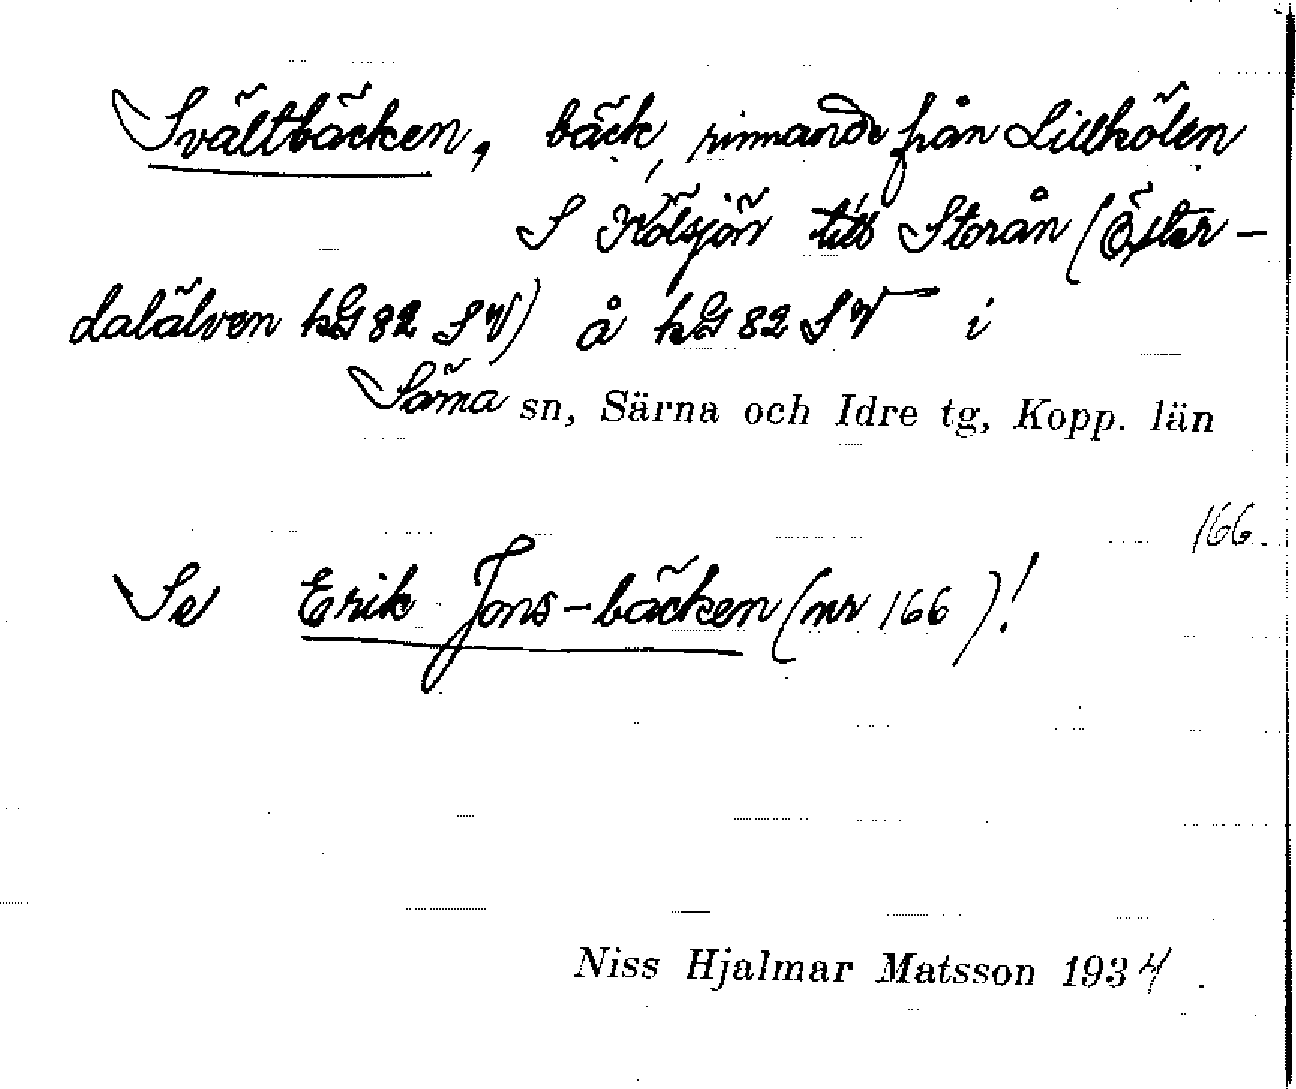 Svältbäcken, bäck, rinnande från Lillkölen
S Kölsjön till Storån (Öster-
dalälven kG 82 SV) å kG 82 SV i
Särna sn, Särna och Idre tg, Kopp. län
166.
Se Erik Jons-bäcken (nr 166)!
Niss Hjalmar Matsson 1934.